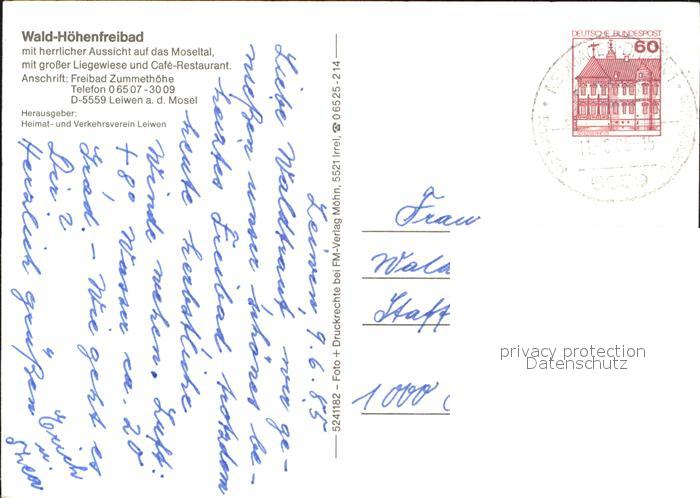 Wald-Höhenfreibad
mit herrlicher Aussicht auf das Moseltal,
mit großer Liegewiese und Café-Restaurant.
Anschrift: Freibad Zummethöhe
Telefon 0 65 07 - 30 09
D-5559 Leiwen a. d. Mosel
Herausgeber:
Heimat- und Verkehrsverein Leiwen
Leiwen, 9.6.85
Liebe Waldtraut, wir ge-
nießen unser schönes be-
heiztes Freibad, trotzdem
heute herbstliche
Winde wehen. Luft:
+ 8° Wasser ca. 20
Grad. – Wie geht es
Dir?
Herzlich grüßen
Erich
u.
5241182 – Foto + Druckrechte bei FM-Verlag Möhn, 5521 Irrel, ☎ 0 65 25 - 214
DEUTSCHE BUNDESPOST
60
5559
Frau
Wald
Staff
1000
privacy protection
Datenschutz